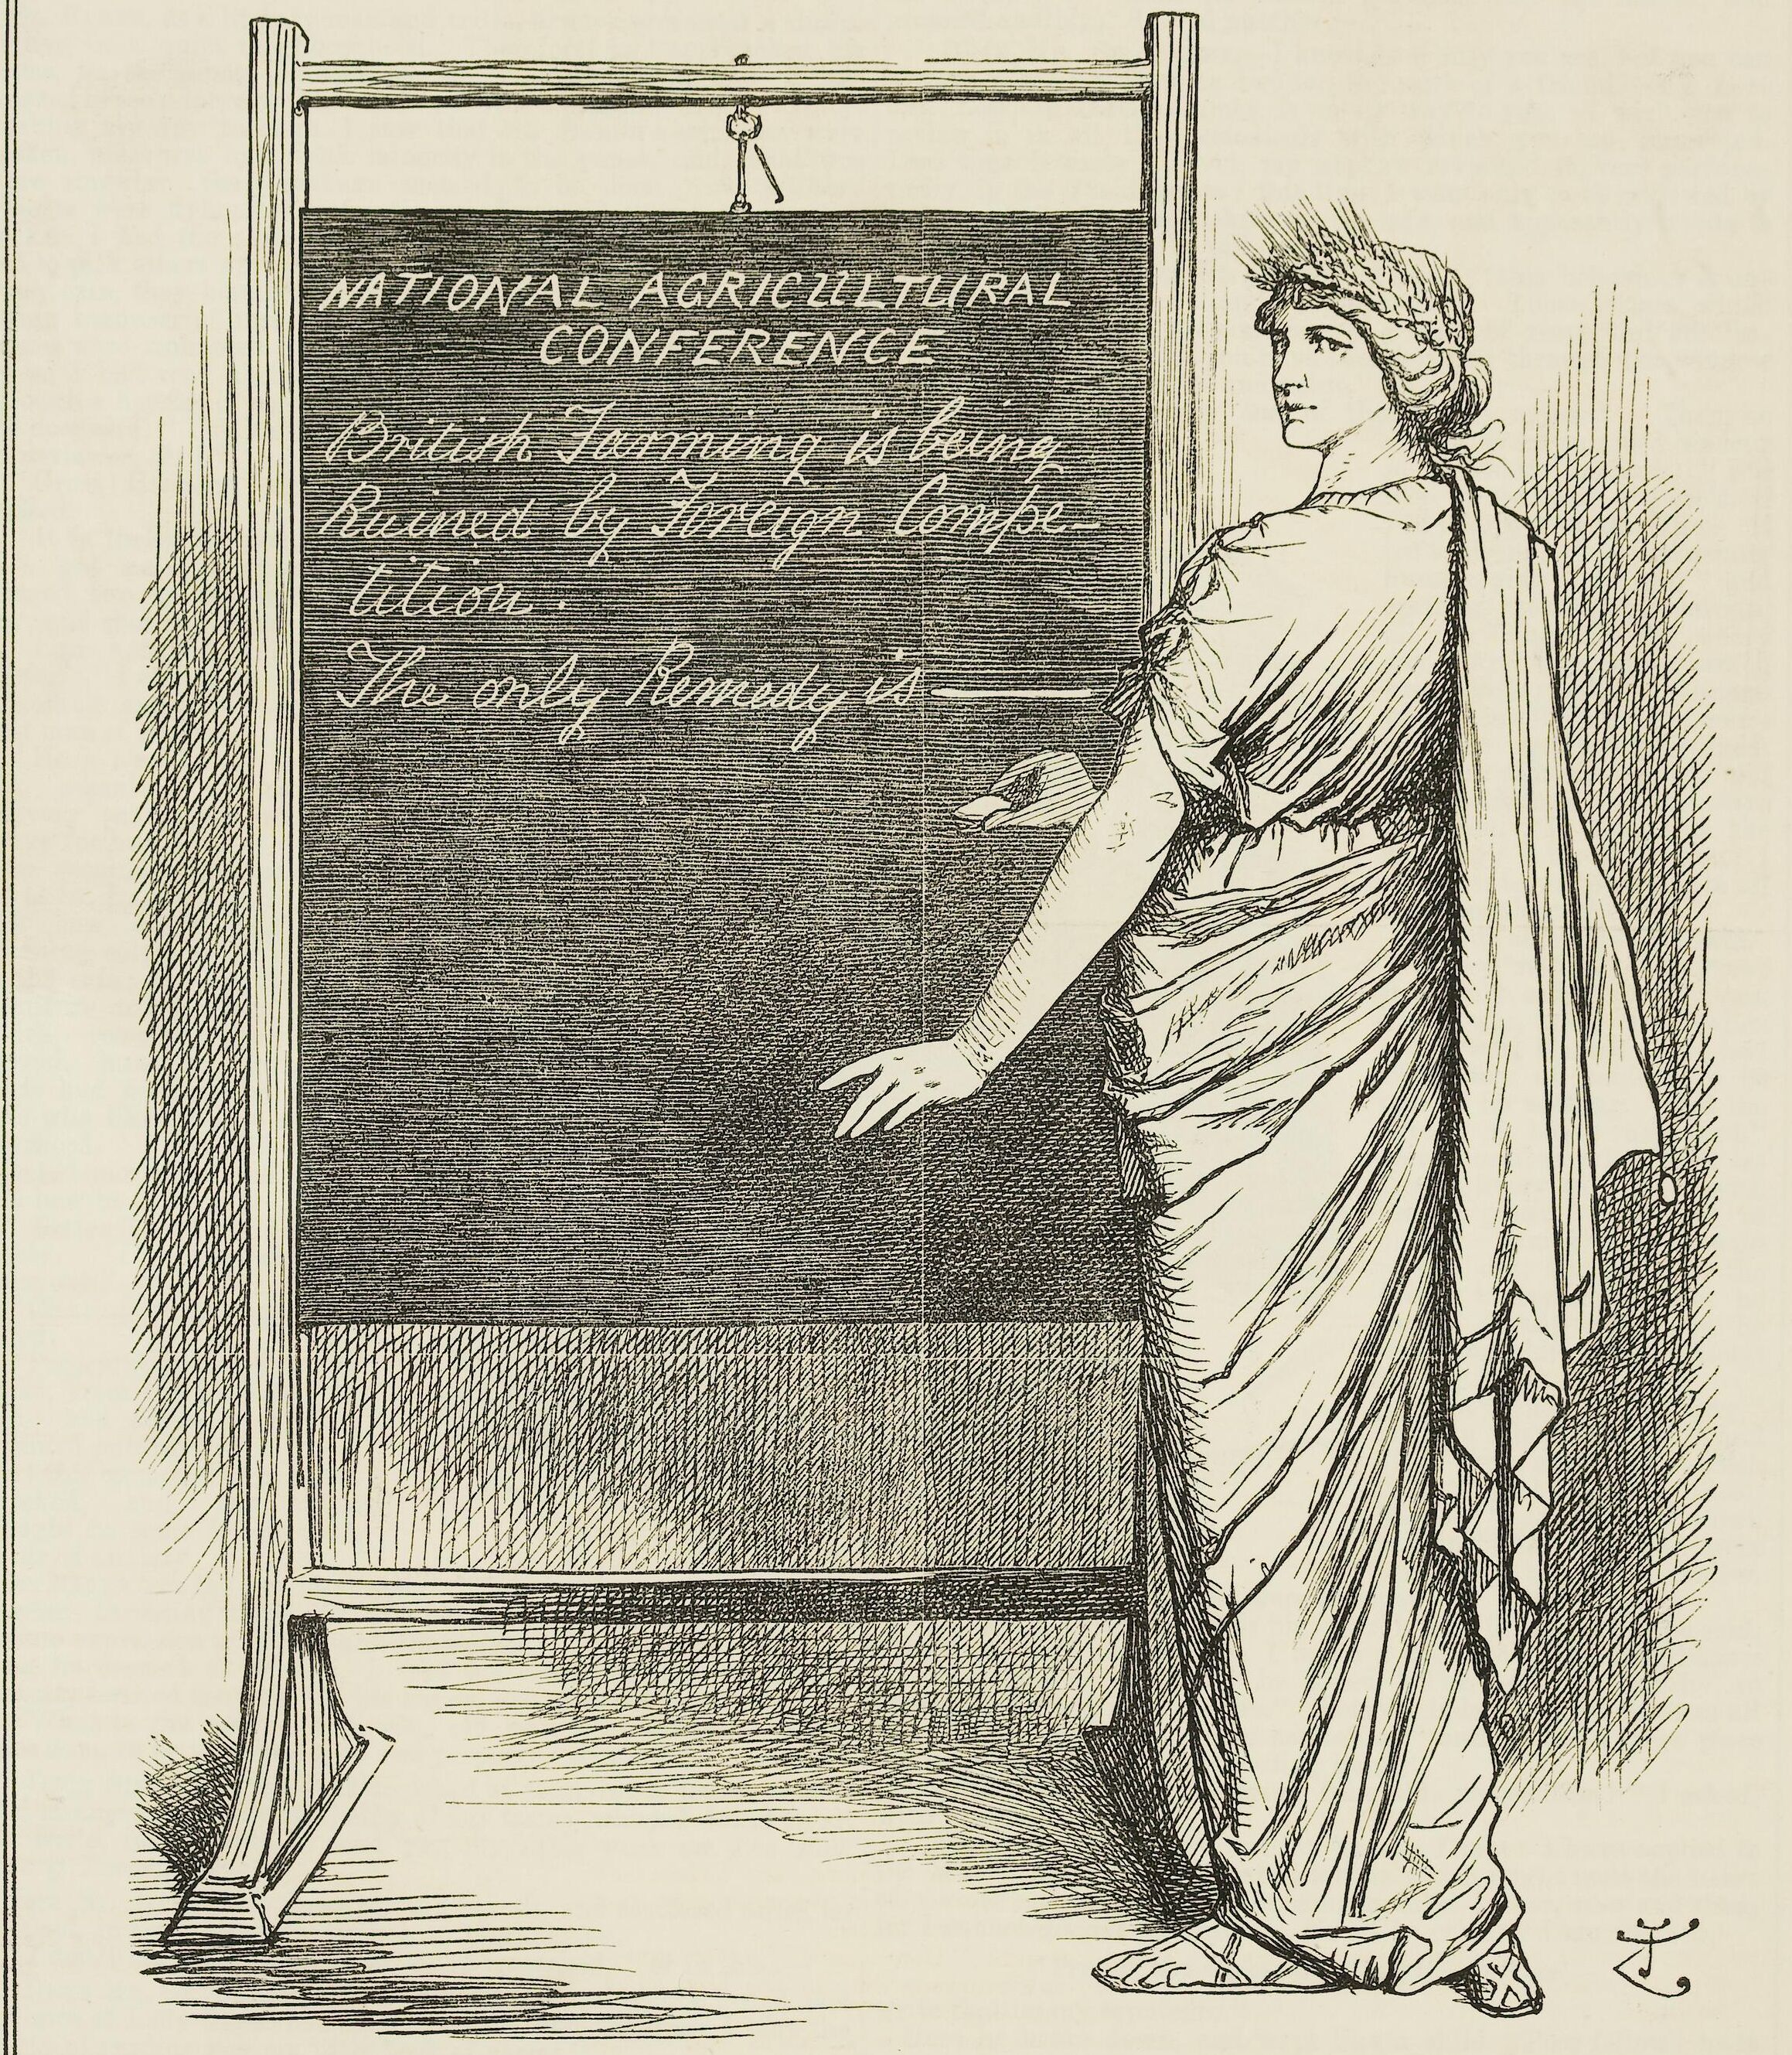 NATIONAL AGRICULTURAL
CONFERENCE
British Farming is being
Ruined by Foreign Compe-
tition.
The only Remedy is —